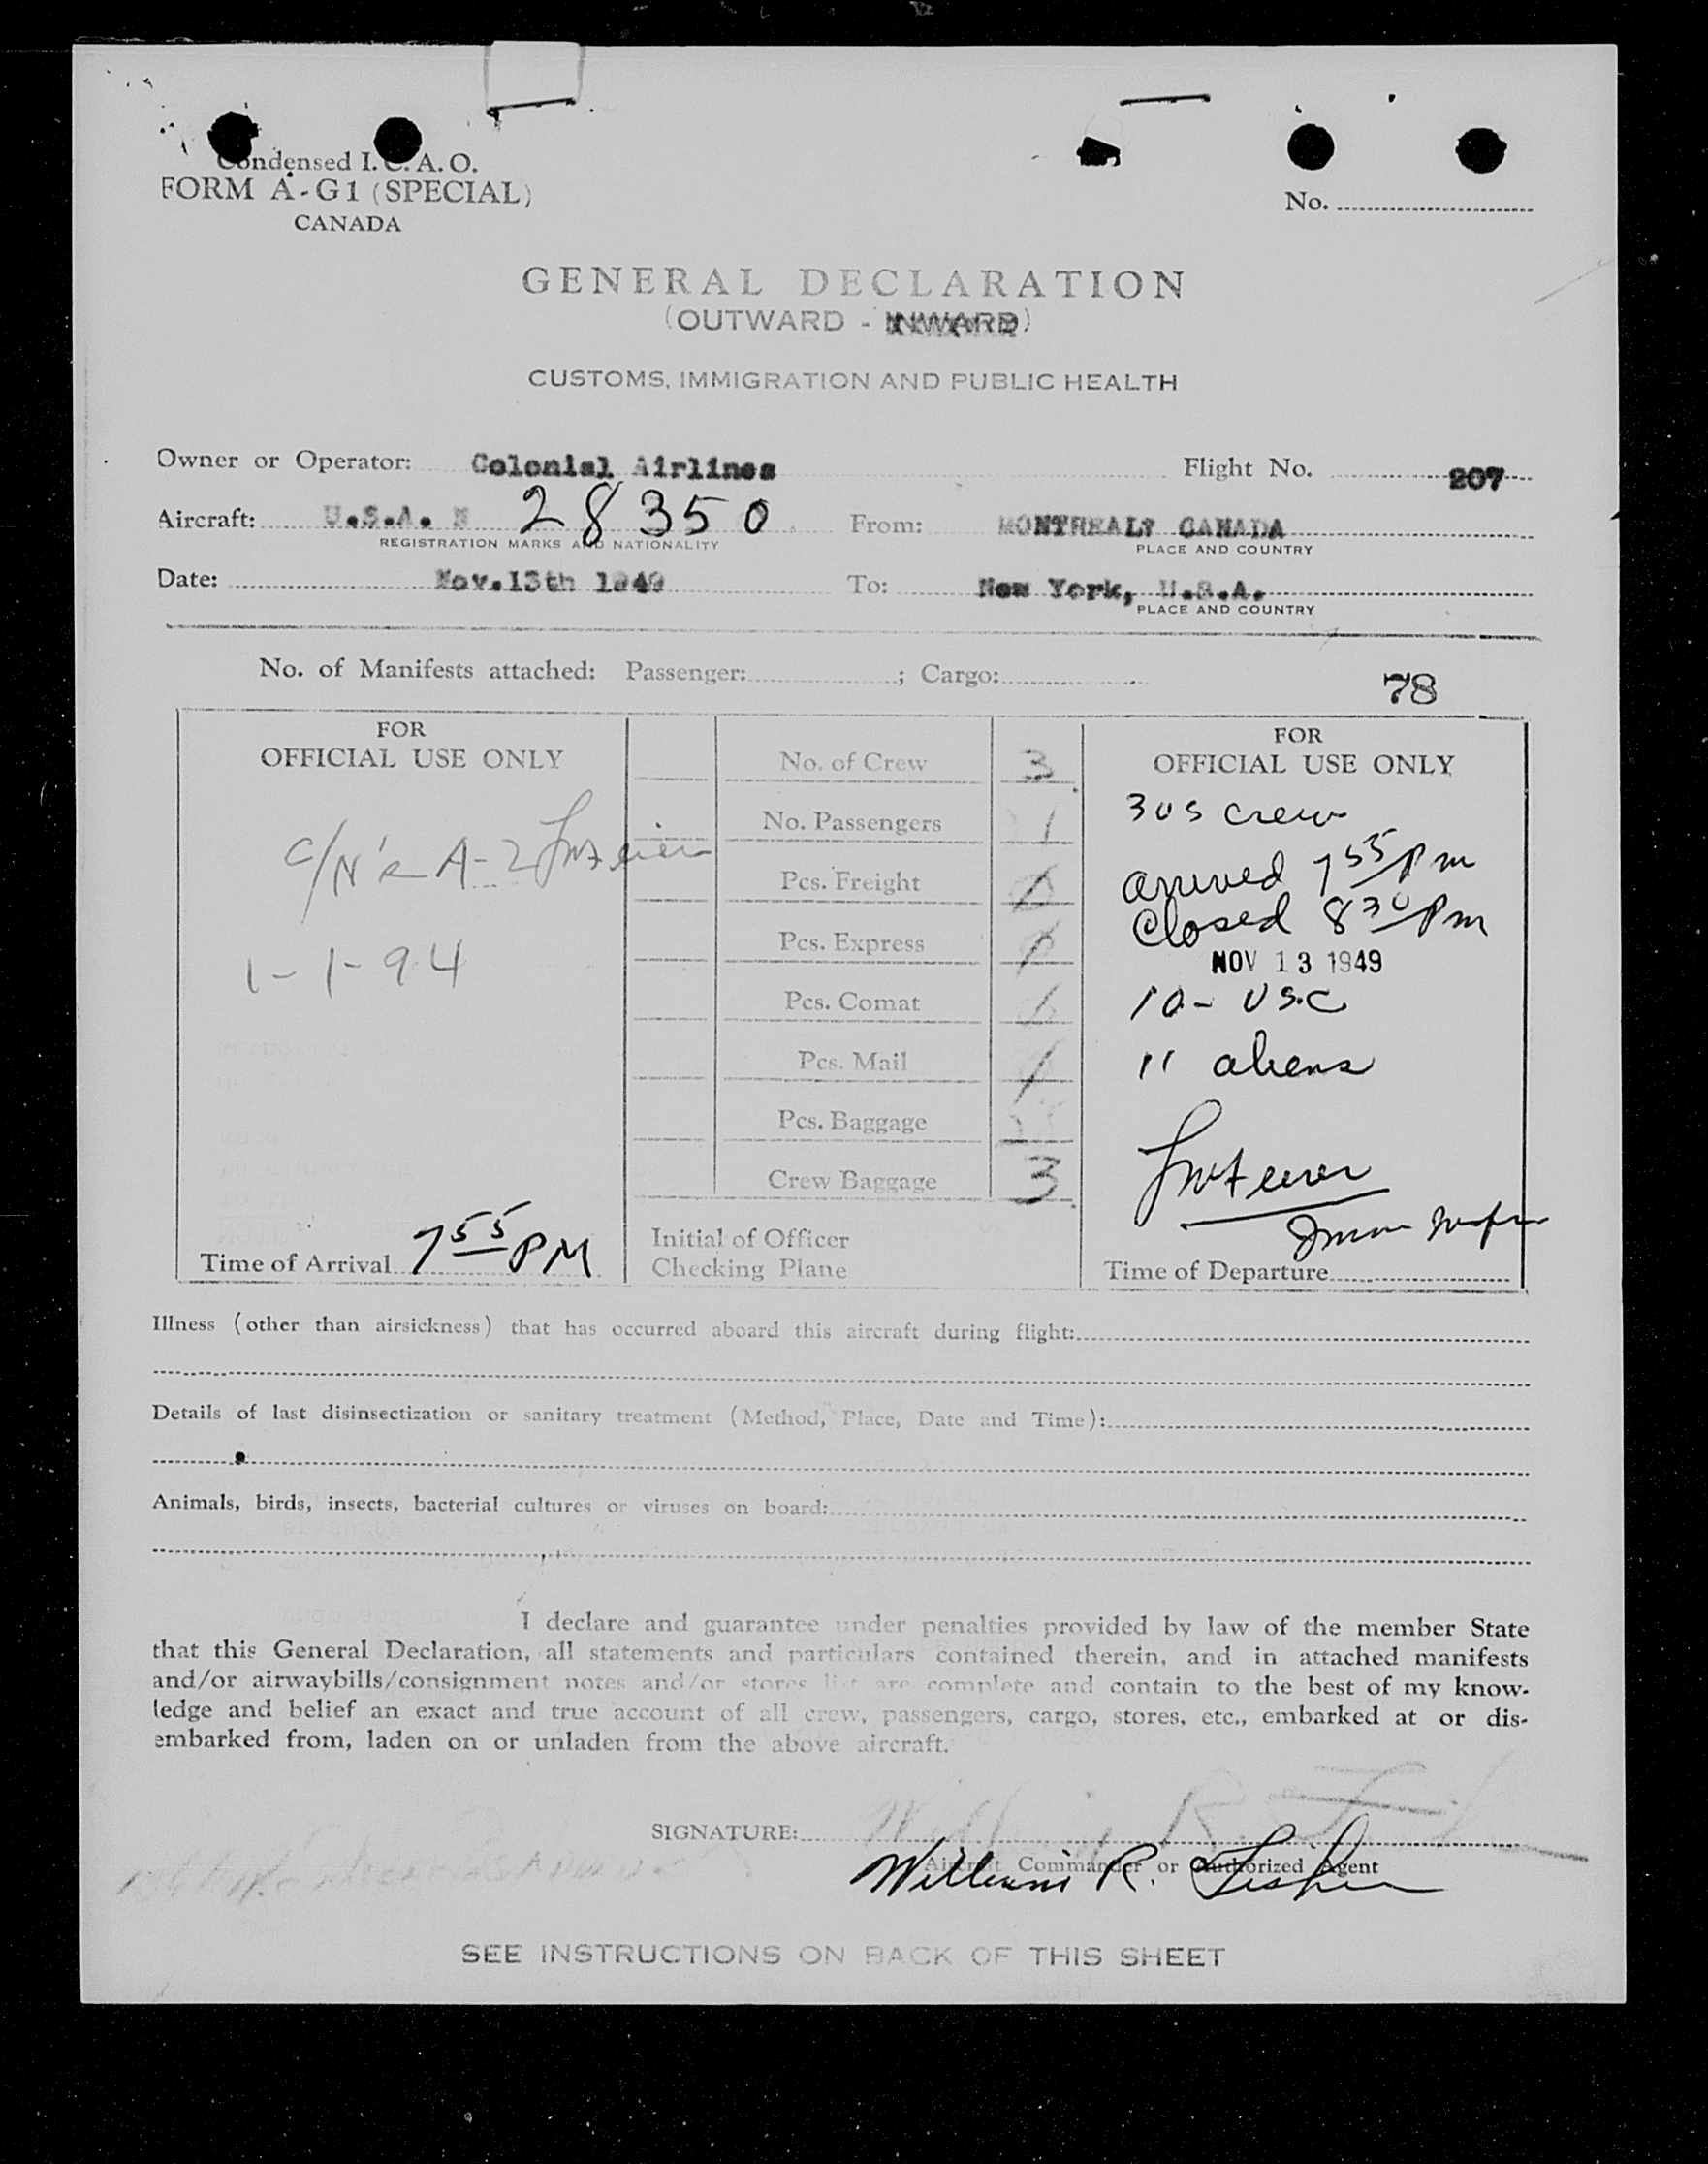 Condensed I. C. A. O.
FORM A-G1 (SPECIAL)
CANADA
No.
GENERAL DECLARATION
(OUTWARD - INWARD)
CUSTOMS, IMMIGRATION AND PUBLIC HEALTH
Owner or Operator: Colonial Airlines Flight No. 207
Aircraft: U.S.A. N 28350 From: MONTREAL, CANADA
REGISTRATION MARKS AND NATIONALITY PLACE AND COUNTRY
Date: Nov.13th 1949 To: New York, U.S.A.
PLACE AND COUNTRY
No. of Manifests attached: Passenger: ; Cargo:
78
FOR
OFFICIAL USE ONLY
A-2
1-1-94
Time of Arrival 7 55 PM
No. of Crew 3
No. Passengers
Pcs. Freight
Pcs. Express
Pcs. Comat
Pcs. Mail
Pcs. Baggage
Crew Baggage 3
Initial of Officer
Checking Plane
FOR
OFFICIAL USE ONLY
3 US crew
arrived 7 55 Pm
Closed 8 30 Pm
NOV 13 1949
10 - US.C
11 aliens
Time of Departure
Illness (other than airsickness) that has occurred aboard this aircraft during flight:
Details of last disinsectization or sanitary treatment (Method, Place, Date and Time):
Animals, birds, insects, bacterial cultures or viruses on board:
I declare and guarantee under penalties provided by law of the member State
that this General Declaration, all statements and particulars contained therein, and in attached manifests
and/or airwaybills/consignment notes and/or stores list are complete and contain to the best of my know-
ledge and belief an exact and true account of all crew, passengers, cargo, stores, etc., embarked at or dis-
embarked from, laden on or unladen from the above aircraft.
SIGNATURE:
Aircraft Commander or Authorized Agent
William R. Fisher
SEE INSTRUCTIONS ON BACK OF THIS SHEET